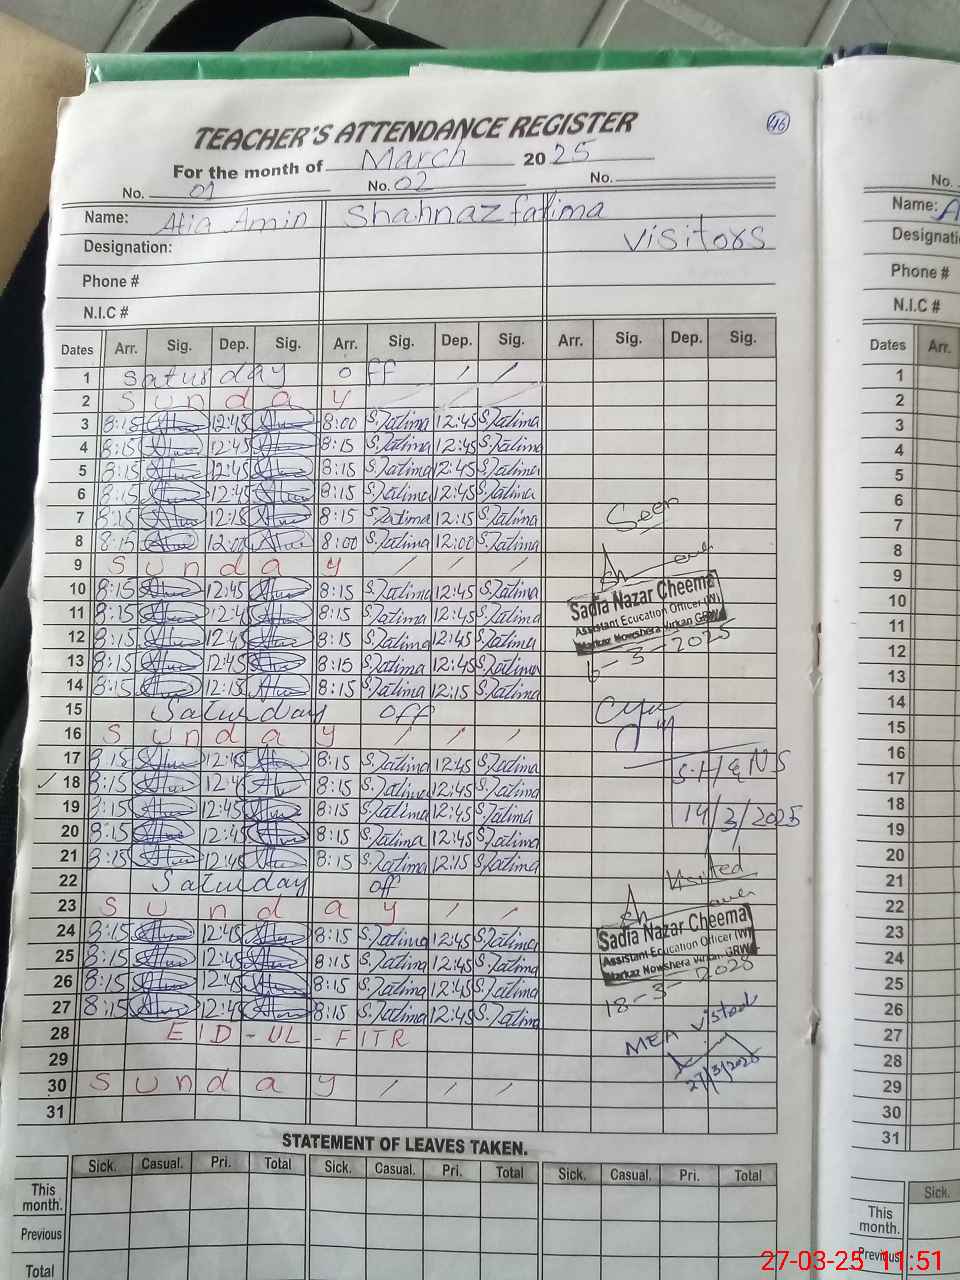 TEACHER'S ATTENDANCE REGISTER
46
For the month of March 2025
No. 01 No. 02 No.
Name: Atia Amin Shahnaz fatima
Designation: visitors
Phone #
N.I.C #
Dates Arr. Sig. Dep. Sig. Arr. Sig. Dep. Sig. Arr. Sig. Dep. Sig.
1 Saturday off
2 Sunday
3 8:15 12:45 8:00 S.Fatima 12:45 S.Fatima
4 8:15 12:45 8:15 S.Fatima 12:45 S.Fatima
5 8:15 12:45 8:15 S.Fatima 12:45 S.Fatima
6 8:15 12:45 8:15 S.Fatima 12:45 S.Fatima
7 8:15 12:15 8:15 S.Fatima 12:15 S.Fatima
8 8:15 12:00 8:00 S.Fatima 12:00 S.Fatima
9 Sunday
10 8:15 12:45 8:15 S.Fatima 12:45 S.Fatima
11 8:15 12:45 8:15 S.Fatima 12:45 S.Fatima
12 8:15 12:45 8:15 S.Fatima 12:45 S.Fatima
13 8:15 12:45 8:15 S.Fatima 12:45 S.Fatima
14 8:15 12:15 8:15 S.Fatima 12:15 S.Fatima
15 Saturday off
16 Sunday
17 8:15 12:45 8:15 S.Fatima 12:45 S.Fatima
18 8:15 12:45 8:15 S.Fatima 12:45 S.Fatima
19 8:15 12:45 8:15 S.Fatima 12:45 S.Fatima
20 8:15 12:45 8:15 S.Fatima 12:45 S.Fatima
21 8:15 12:45 8:15 S.Fatima 12:15 S.Fatima
22 Saturday off
23 Sunday
24 8:15 12:45 8:15 S.Fatima 12:45 S.Fatima
25 8:15 12:45 8:15 S.Fatima 12:45 S.Fatima
26 8:15 12:45 8:15 S.Fatima 12:45 S.Fatima
27 8:15 12:45 8:15 S.Fatima 12:45 S.Fatima
28 EID-UL-FITR
29
30 Sunday
31
Seen
Sadia Nazar Cheema
Assistant Education Officer (W)
Markaz Nowshera Virkan GRW
6-3-2025
S.H/E NS
14/3/2025
Visited
Sadia Nazar Cheema
Assistant Education Officer (W)
Markaz Nowshera Virkan GRW
18-3-2025
MEA visted
27/3/2025
STATEMENT OF LEAVES TAKEN.
Sick. Casual. Pri. Total Sick. Casual. Pri. Total Sick. Casual. Pri. Total
This month.
Previous
Total
No.
Name: A
Designati
Phone #
N.I.C #
Dates Arr.
1
2
3
4
5
6
7
8
9
10
11
12
13
14
15
16
17
18
19
20
21
22
23
24
25
26
27
28
29
30
31
Sick.
This month.
Previous
27-03-25 11:51